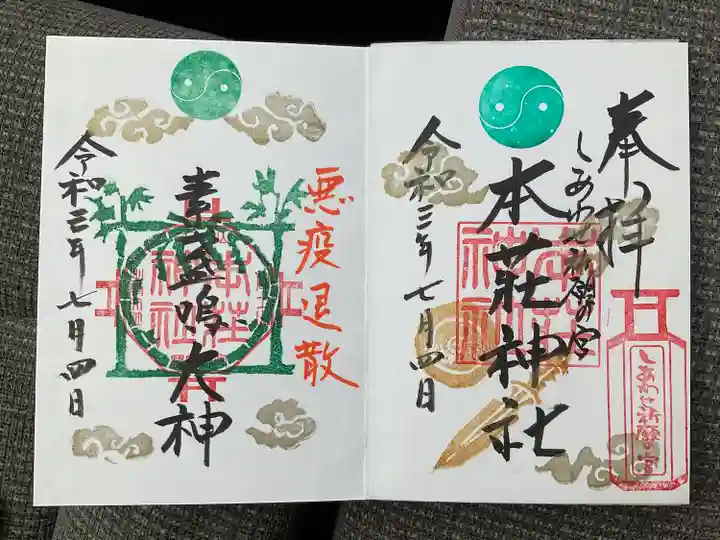 奉拝
しあわせ祈願の宮
本荘神社
令和三年七月四日
しあわせ祈願の宮
本荘神社
悪疫退散
素盞鳴大神
令和三年七月四日
本荘神社